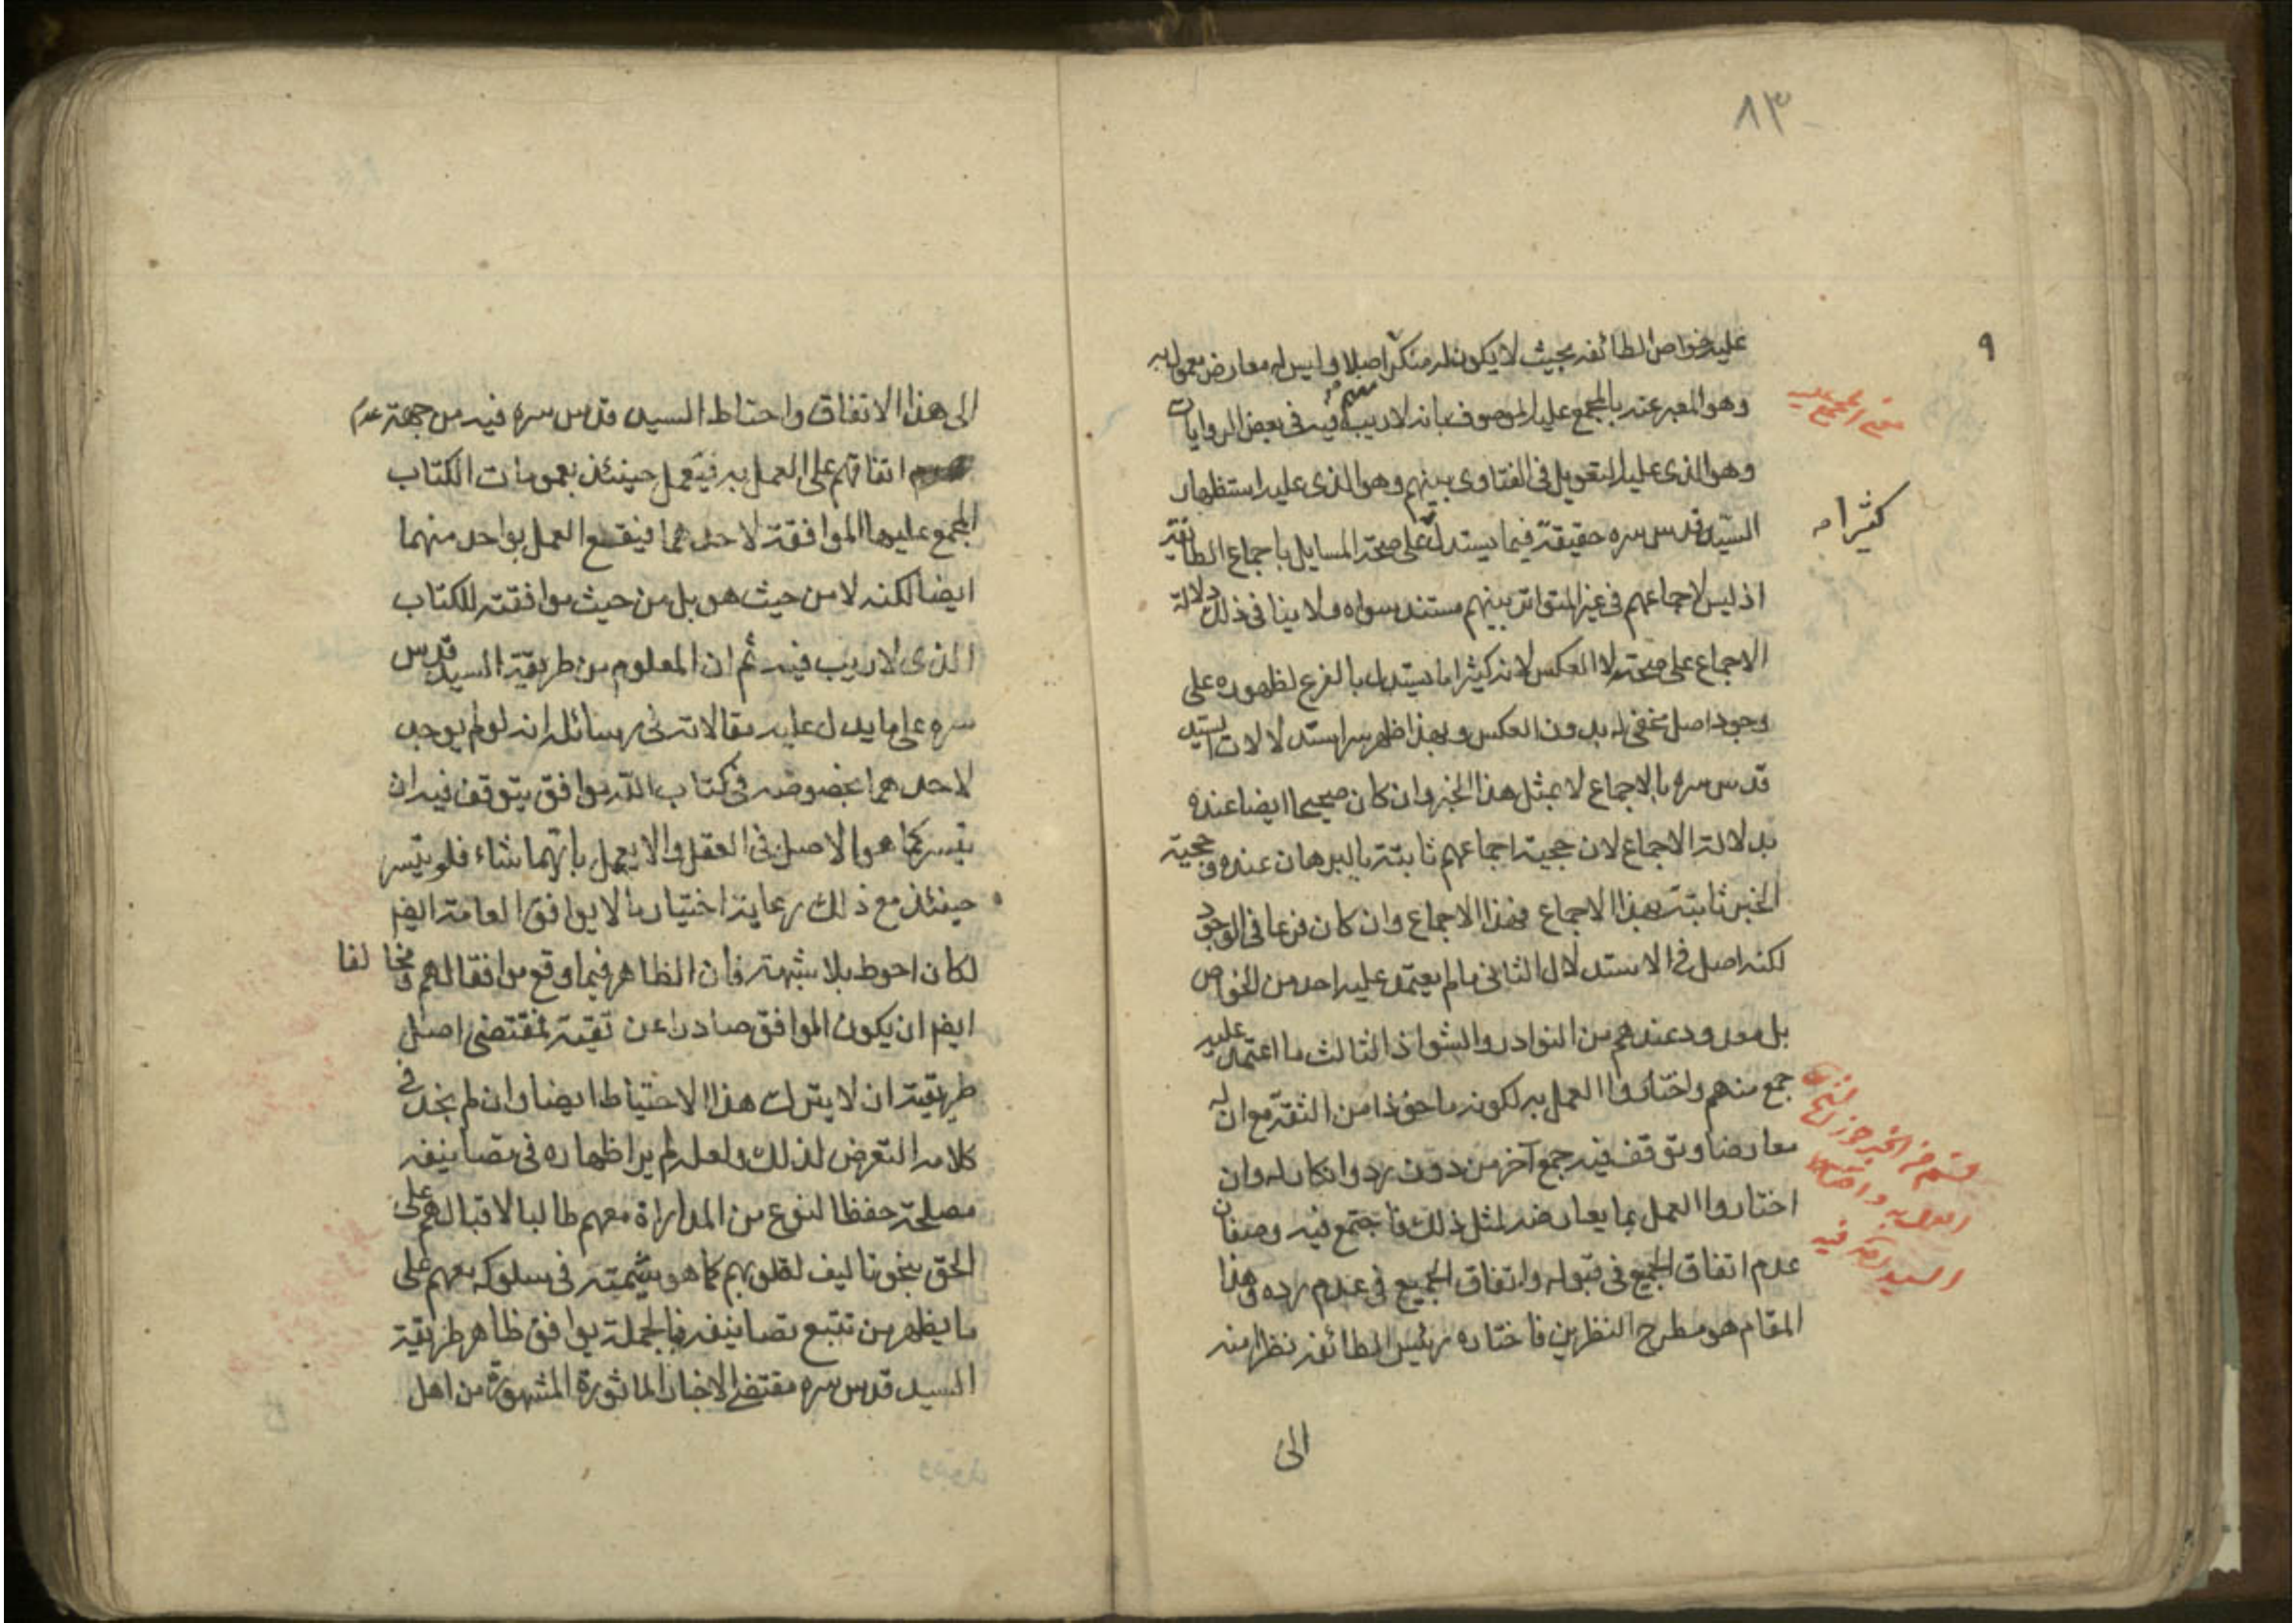 ٨٣
٩
عليه خواص الطائفه بحيث لا يكون له منكر اصلا وليس له معارض معمول به
وهو المعبر عنه بالمجمع عليه الموصوف بانه لا ريب فيه فى بعض الروايات
معنى المجمع عليه
وهو الذى عليه التعويل فى الفتاوى بينهم وهو الذى عليه استظهار
كثيرا مه
السيد قدس سره حقيقة فيما يستدل على صحة المسايل باجماع الطائفة
اذ ليس لاجماعهم فى غير المتواتر بينهم مستند سواه ولا ينافى ذلك دلالة
الاجماع على صحته لا العكس لانه كثيرا ما يستدل بالفرع لظهوره على
وجود اصل مخفى له بدون العكس وبهذا ظهر سر استدلالات السيد
قدس سره بالاجماع لا بمثل هذا الخبر وان كان صحيحا ايضا عنده
بدلالة الاجماع لان حجية اجماعهم ثابتة بالبرهان عنده وحجية
الخبر ثابتة بهذا الاجماع فهذا الاجماع وان كان فرعا فى الوجود
لكنه اصل فى الاستدلال الثانى ما لم يعتمد عليه احد من الخواص
بل مورود عندهم من النوادر والشواذ الثالث ما اعتمد عليه
جمع منهم واختاروا العمل به لكونه ماخوذا من الثقة مع ان له
معارضا وتوقف فيه جمع آخر من دون رد وانكار له وان
قسم من الخبر جوز
العمل به
السيد فيه
اختاروا العمل بما يعارضه لمثل ذلك فاجتمع فيه وصفان
عدم اتفاق الجميع فى قبوله واتفاق الجميع فى عدم رده وهذا
المقام هو مطرح النظرين فاختاره رئيس الطائفه نظرا منه
الى
الى هذا الاتفاق واحتاط السيد قدس سره فيه من جهة عدم
اتفاقهم على العمل به فيعمل حينئذ بعمومات الكتاب
المجمع عليها الموافقة لاحدهما فيقع العمل بواحد منهما
ايضا لكنه لا من حيث هو بل من حيث موافقته للكتاب
الذى لا ريب فيه ثم ان المعلوم من طريقة السيد قدس
سره على ما يدل عليه مقالاته فى رسائله انه لو لم يوجد
لاحدهما بخصوصه فى كتاب الله موافق يتوقف فيه ان
تيسر كما هو الاصل فى العقل والا يعمل بايهما شاء فلو تيسر
حينئذ مع ذلك رعاية اختيار ما لا يوافق العامة ايضا
لكان احوط بلا شبهة فان الظاهر فيما وقع موافقا لهم ومخالفا
ايضا ان يكون الموافق صادرا عن تقية فمقتضى اصل
طريقته ان لا يترك هذا الاحتياط ايضا وان لم نجد فى
كلامه التعرض لذلك ولعله لم ير اظهاره فى تصانيفه
مصلحة حفظا لنوع من المداراة معهم طالبا لاقبالهم على
الحق بنحو تاليف لقلوبهم كما هو شيمته فى سلوكه معهم على
ما يظهر من تتبع تصانيفه فبالجملة يوافق ظاهر طريقة
السيد قدس سره مقتضى الاخبار الماثورة المشهورة من اهل